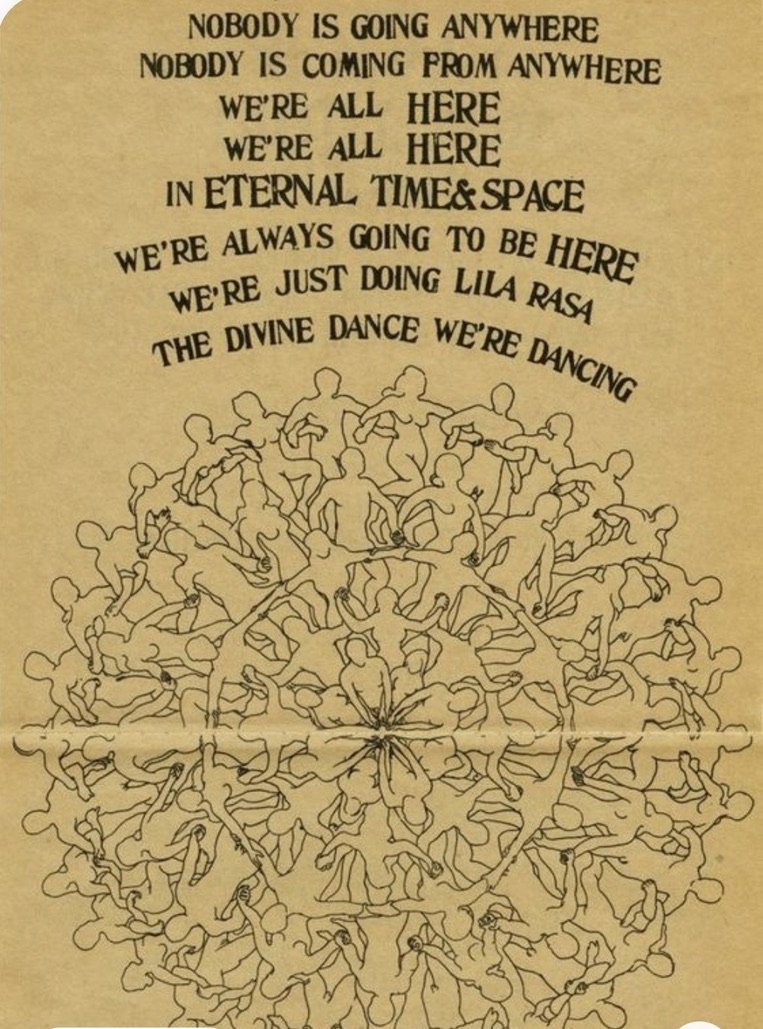 NOBODY IS GOING ANYWHERE
NOBODY IS COMING FROM ANYWHERE
WE'RE ALL HERE
WE'RE ALL HERE
IN ETERNAL TIME&SPACE
WE'RE ALWAYS GOING TO BE HERE
WE'RE JUST DOING LILA RASA
THE DIVINE DANCE WE'RE DANCING